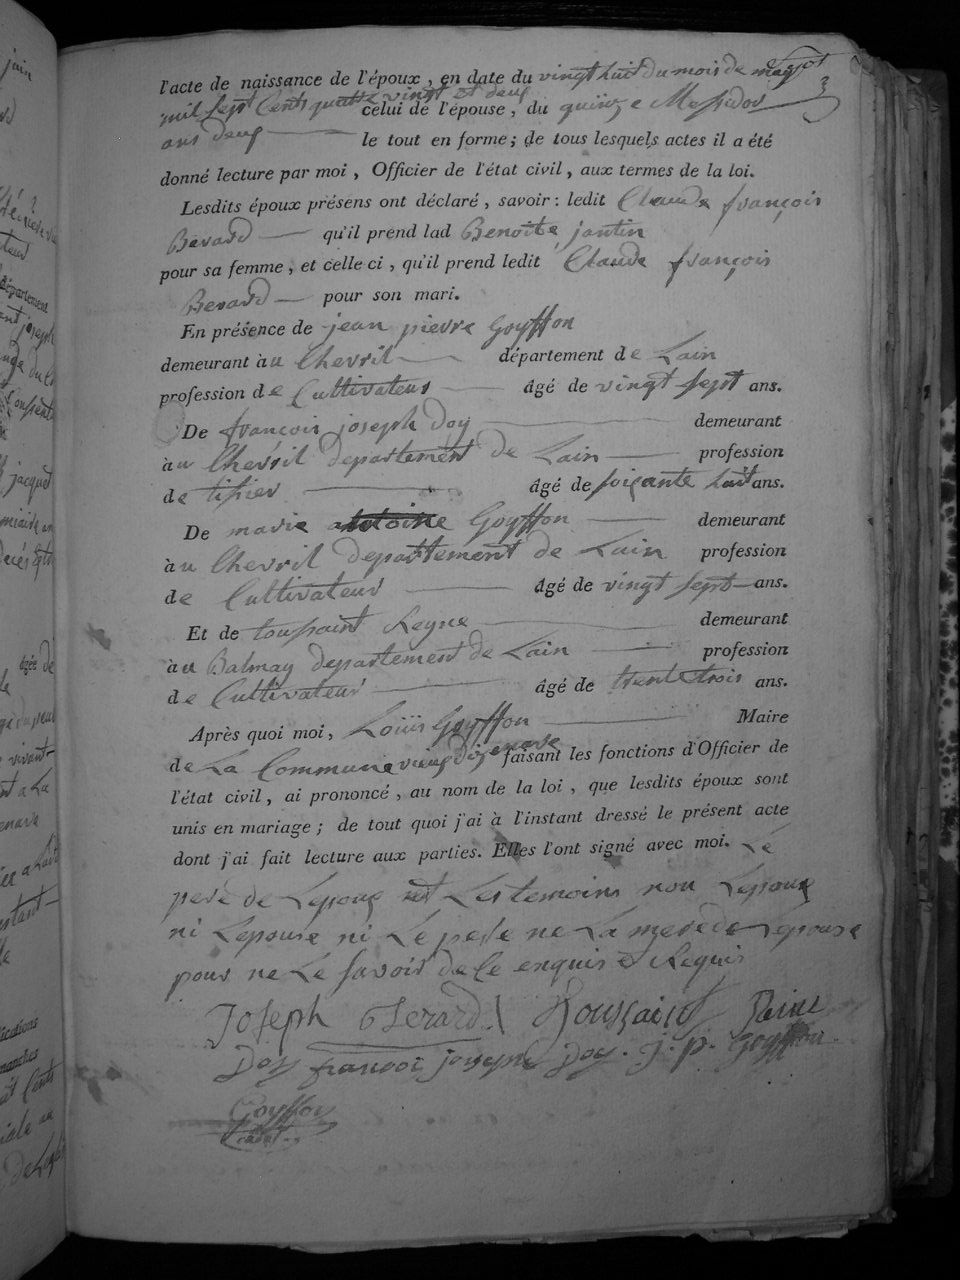 l'acte de naissance de l'époux, en date du vingt huit du mois de may
mil sept Cents quattre vingt et deux celui de l'épouse, du quinze Messidor
ans deux le tout en forme; de tous lesquels actes il a été
donné lecture par moi, Officier de l'état civil, aux termes de la loi.
Lesdits époux présens ont déclaré, savoir: ledit Claude françois
Berard qu'il prend lad Benoite jantin
pour sa femme, et celle ci, qu'il prend ledit Claude françois
Berard pour son mari.
En présence de jean pierre Goyffon
demeurant au Chevril département de Lain
profession de Cultivateur âgé de vingt sept ans.
De francoir joseph Doy demeurant
au Chevril departement de Lain profession
de tisier âgé de soiçante huit ans.
De marie antoine Goyffon demeurant
au Chevril departement de Lain profession
de Cultivateur âgé de vingt sept ans.
Et de toussaint Reyne demeurant
au Balmay departement de Lain profession
de Cultivateur âgé de trente trois ans.
Après quoi moi, Loüis Goyffon Maire
de La Commune vieux Dizenave faisant les fonctions d'Officier de
l'état civil, ai prononcé, au nom de la loi, que lesdits époux sont
unis en mariage; de tout quoi j'ai à l'instant dressé le présent acte
dont j'ai fait lecture aux parties. Elles l'ont signé avec moi. Le
pere de Lepoux et Les temoins non Lepoux
ni Lepouse ni Le pere ne La mere de Lepouse
pour ne Le savoir de Ce enquis et Requis
Joseph Berard Toussaint Reine
Doy francoi joseph Doy. J. p. Goyffon
Goyffon